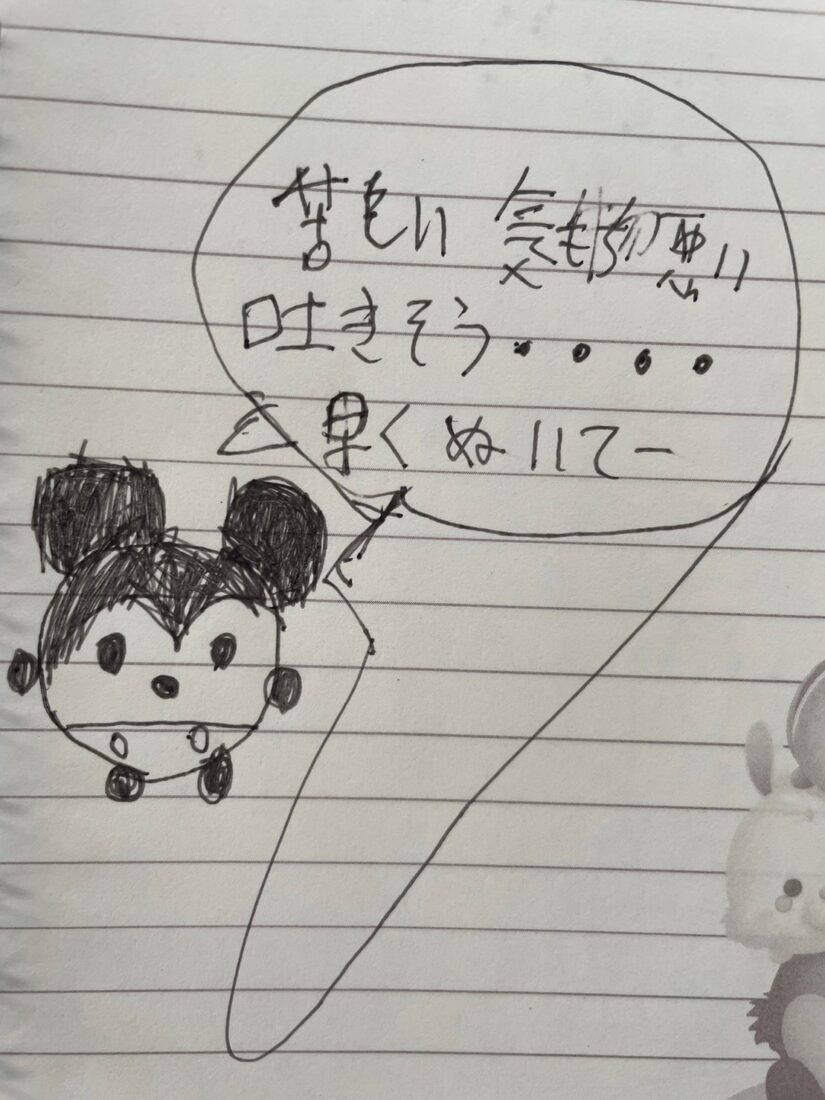 苦しい 気持ち悪い
吐きそう・・・・
早くぬいてー